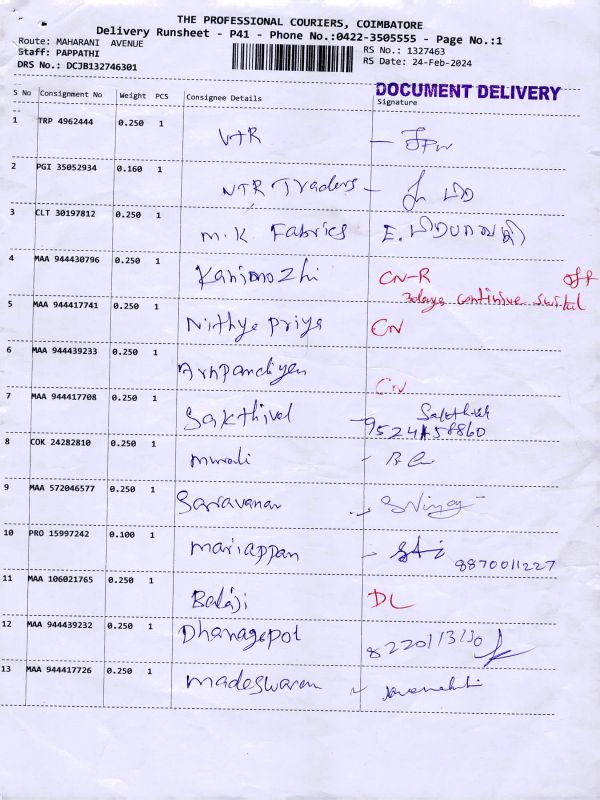 THE PROFESSIONAL COURIERS, COIMBATORE
Delivery Runsheet - P41 - Phone No.:0422-3505555 - Page No.:1
Route: MAHARANI AVENUE RS No.: 1327463
Staff: PAPPATHI RS Date: 24-Feb-2024
DRS No.: DCJB132746301
DOCUMENT DELIVERY
S No Consignment No Weight PCS Consignee Details Signature
1 TRP 4962444 0.250 1 VTR
2 PGI 35052934 0.160 1 NTR Traders
3 CLT 30197812 0.250 1 M.K. Fabrics E.
4 MAA 944430796 0.250 1 Kanimozhi CN-R off
3days continive switcd
5 MAA 944417741 0.250 1 Nithya priya CN
6 MAA 944439233 0.250 1 Arnpandiyan CN
7 MAA 944417708 0.250 1 Sakthivel
8 COK 24282810 0.250 1 murali
9 MAA 572046577 0.250 1 Saravanan
10 PRO 15997242 0.100 1 mariappan 8870011227
11 MAA 106021765 0.250 1 Balaji DL
12 MAA 944439232 0.250 1 Dhanagopal
13 MAA 944417726 0.250 1 madeswaran